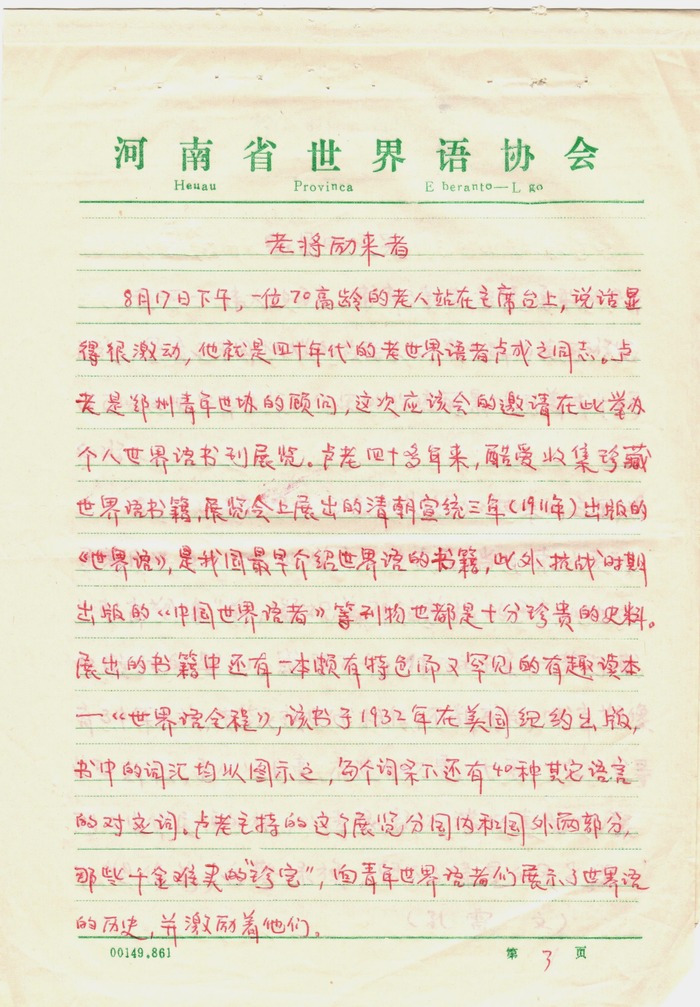 河南省世界语协会
Heuau Provinca E beranto—L go
老将励来者
8月17日下午,一位70高龄的老人站在主席台上,说话显
得很激动,他就是四十年代的老世界语者卢戎之同志。卢
老是郑州青年世协的顾问,这次应该会的邀请在此举办
个人世界语书刊展览。卢老四十多年来,酷爱收集珍藏
世界语书籍,展览会上展出的清朝宣统三年(1911年)出版的
《世界语》,是我国最早介绍世界语的书籍,此外抗战时期
出版的《中国世界语者》等刊物也都是十分珍贵的史料。
展出的书籍中还有一本颇有特色而又罕见的有趣读本
—《世界语全程》,该书于1932年在美国纽约出版,
书中的词汇均以图示之,每个词条下还有40种其它语言
的对应词。卢老主持的这个展览分国内和国外两部分,
那些千金难买的"珍宝",向青年世界语者们展示了世界语
的历史,并激励着他们。
00149.861 第 3 页